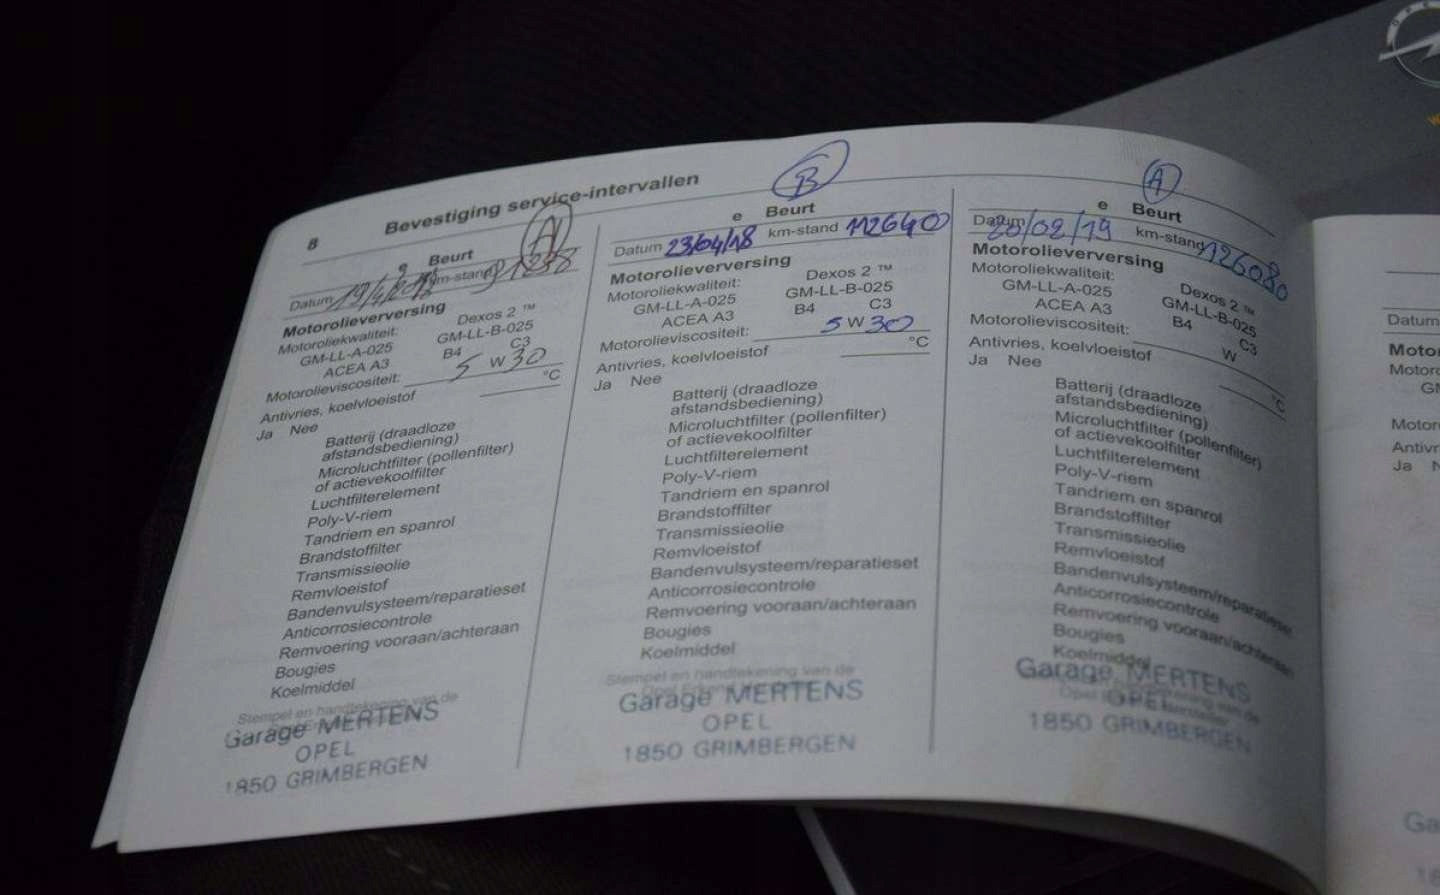 8 Bevestiging service-intervallen
A
e Beurt
Datum km-stand
Motorolieverversing
Motoroliekwaliteit: Dexos 2 ™
GM-LL-A-025 GM-LL-B-025
ACEA A3 B4 C3
Motorolieviscositeit: 5 W 30
Antivries, koelvloeistof °C
Ja Nee
Batterij (draadloze
afstandsbediening)
Microluchtfilter (pollenfilter)
of actievekoolfilter
Luchtfilterelement
Poly-V-riem
Tandriem en spanrol
Brandstoffilter
Transmissieolie
Remvloeistof
Bandenvulsysteem/reparatieset
Anticorrosiecontrole
Remvoering vooraan/achteraan
Bougies
Koelmiddel
Stempel en handtekening van de
Garage MERTENS
OPEL
1850 GRIMBERGEN
B
e Beurt
Datum 23/04/18 km-stand 112640
Motorolieverversing
Motoroliekwaliteit: Dexos 2 ™
GM-LL-A-025 GM-LL-B-025
ACEA A3 B4 C3
Motorolieviscositeit: 5 W 30
Antivries, koelvloeistof °C
Ja Nee
Batterij (draadloze
afstandsbediening)
Microluchtfilter (pollenfilter)
of actievekoolfilter
Luchtfilterelement
Poly-V-riem
Tandriem en spanrol
Brandstoffilter
Transmissieolie
Remvloeistof
Bandenvulsysteem/reparatieset
Anticorrosiecontrole
Remvoering vooraan/achteraan
Bougies
Koelmiddel
Stempel en handtekening van de
Garage MERTENS
OPEL
1850 GRIMBERGEN
A
e Beurt
Datum 25/02/19 km-stand 126080
Motorolieverversing
Motoroliekwaliteit: Dexos 2 ™
GM-LL-A-025 GM-LL-B-025
ACEA A3 B4 C3
Motorolieviscositeit: W
Antivries, koelvloeistof °C
Ja Nee
Batterij (draadloze
afstandsbediening)
Microluchtfilter (pollenfilter)
of actievekoolfilter
Luchtfilterelement
Poly-V-riem
Tandriem en spanrol
Brandstoffilter
Transmissieolie
Remvloeistof
Bandenvulsysteem/reparatieset
Anticorrosiecontrole
Remvoering vooraan/achteraan
Bougies
Koelmiddel
Garage MERTENS
OPEL
1850 GRIMBERGEN
Datum
Ja